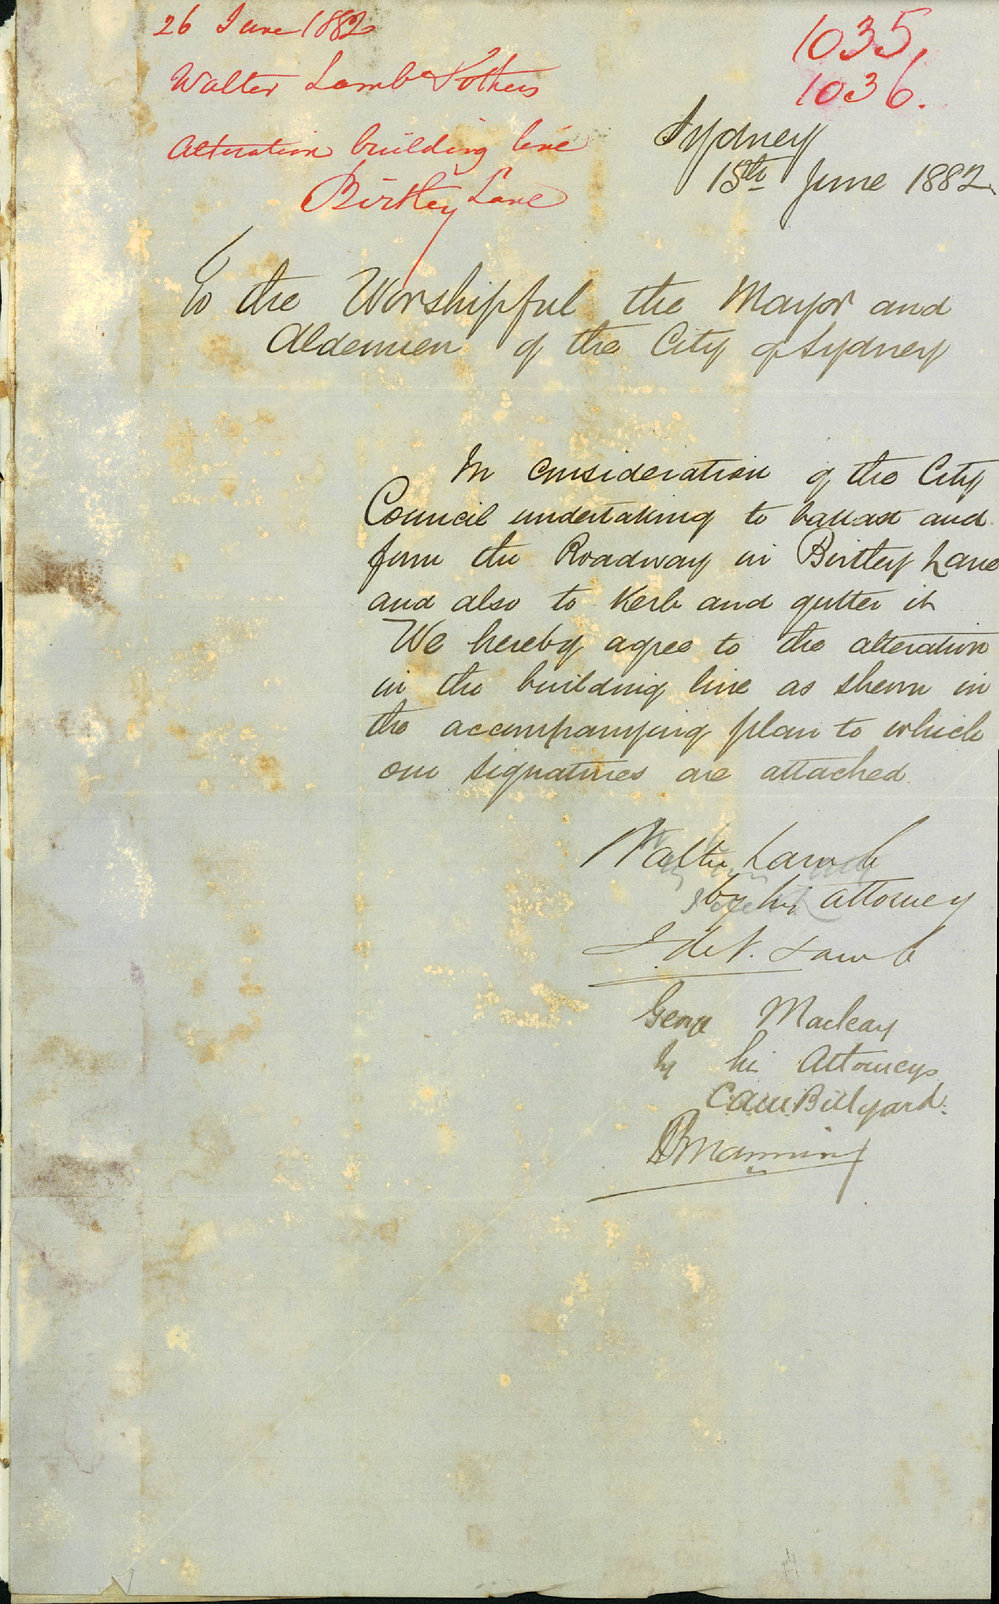 26 June 1882
Walter Lamb & others
Alteration building line
Birtley Lane
1035,
1036.
Sydney
15th June 1882
To the Worshipful the Mayor and
Aldermen of the City of Sydney
In consideration of the City
Council undertaking to ballast and
form the Roadway in Birtley Lane
and also to Kerb and gutter it
We hereby agree to the alteration
in the building line as shewn in
the accompanying plan to which
our signatures are attached
Walter Lamb
by his attorney
J. de V. Lamb
George Macleay
by his Attorneys
Billyard.
Manning